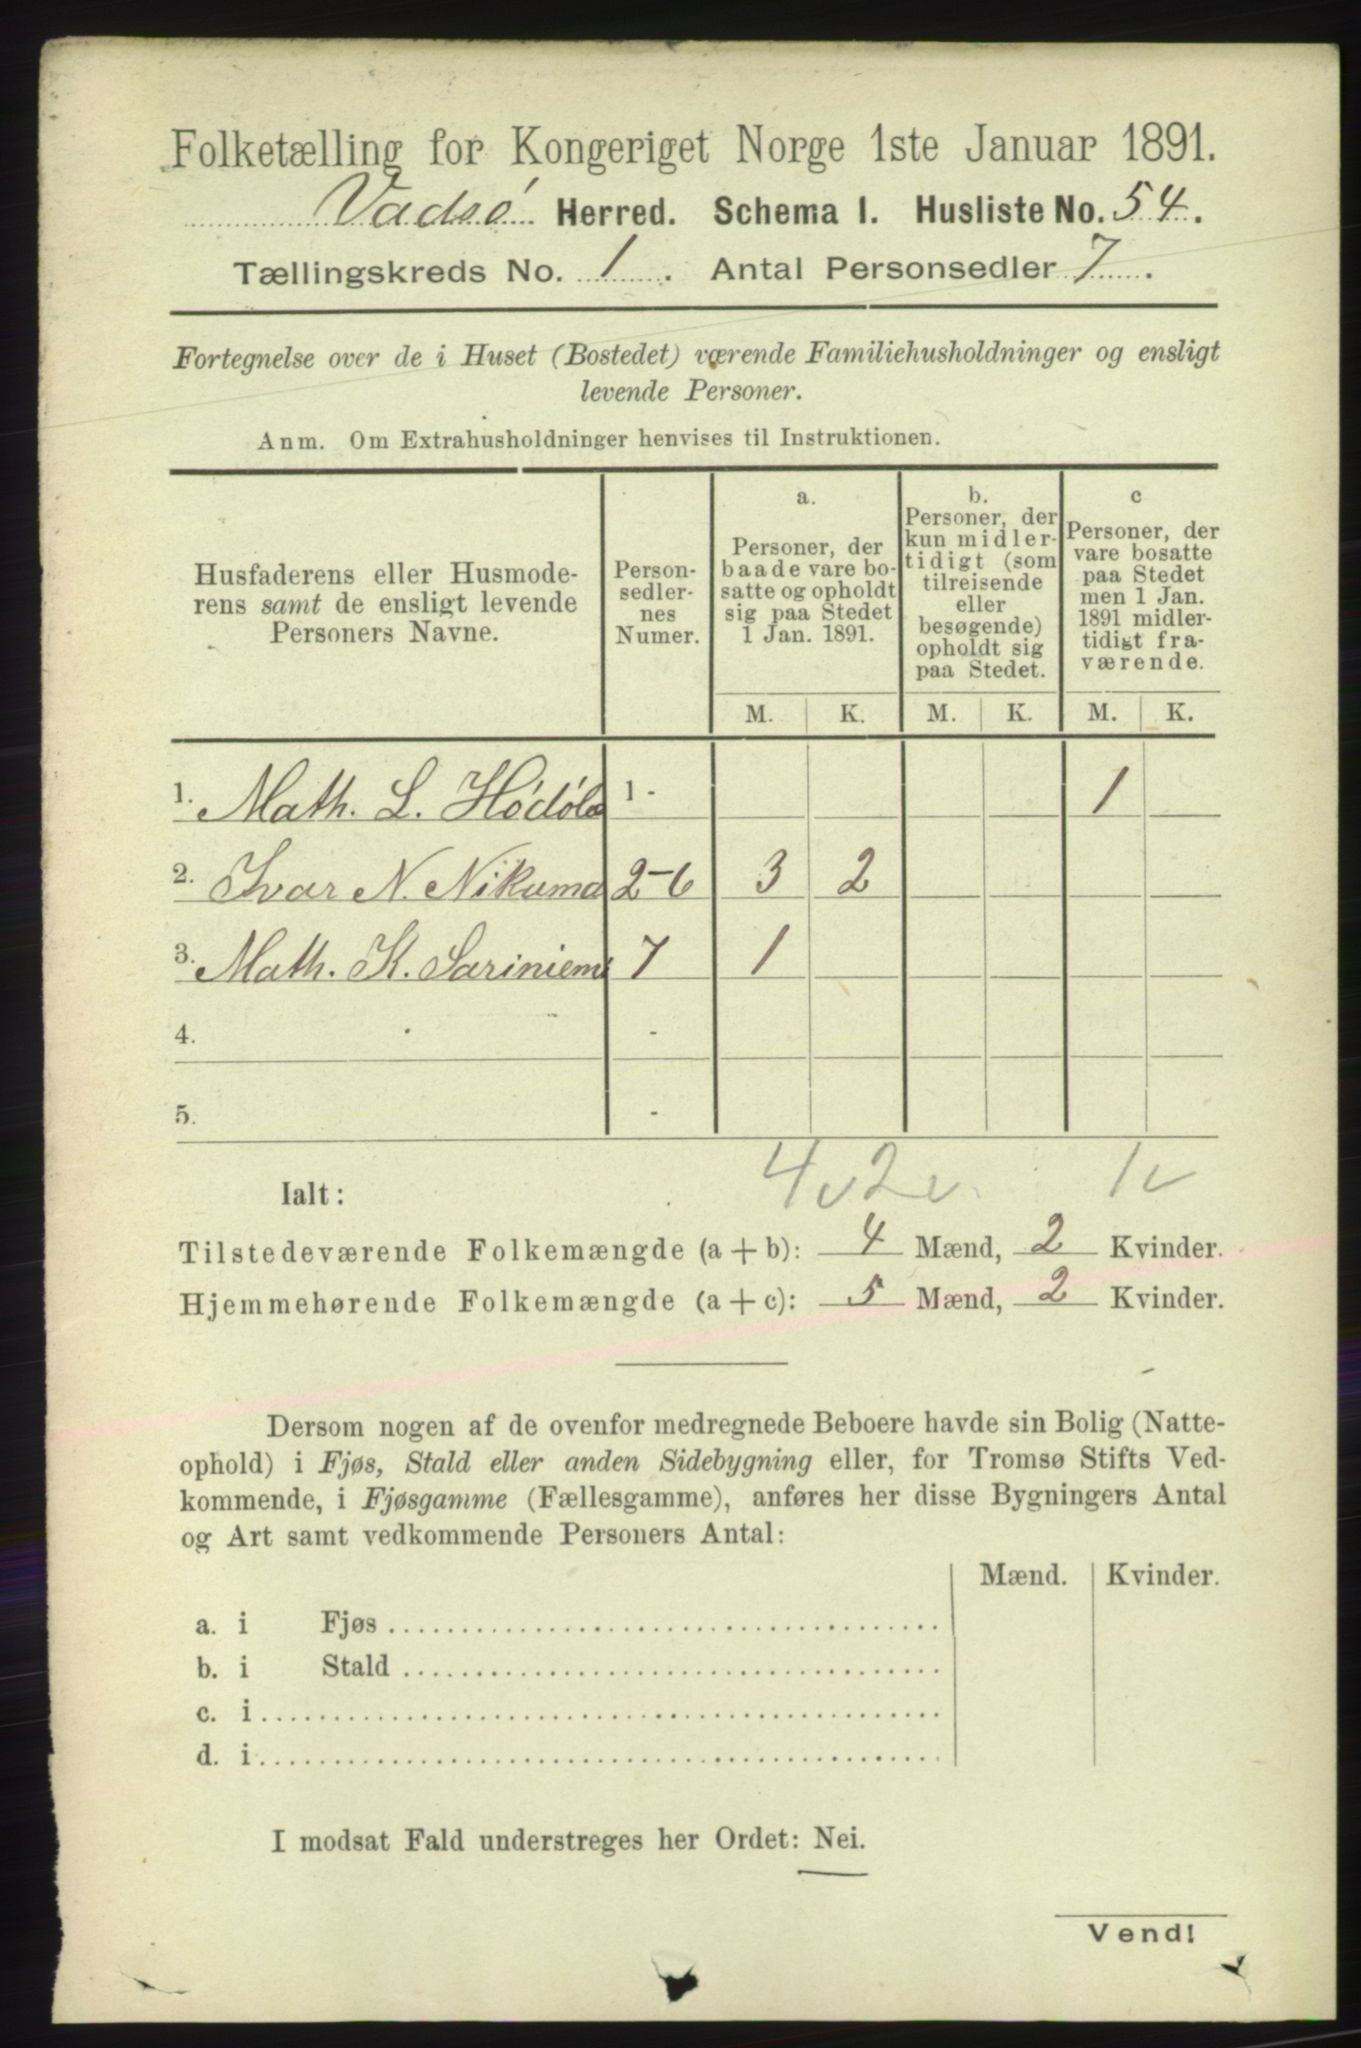 Folketælling for Kongeriget Norge 1ste Januar 1891.
Vadsö Herred. Schema I. Husliste No. 54.
Tællingskreds No. 1. Antal Personsedler 7.
Fortegnelse over de i Huset (Bostedet) værende Familiehusholdninger og ensligt
levende Personer.
Anm. Om Extrahusholdninger henvises til Instruktionen.
Husfaderens eller Husmode-
rens samt de ensligt levende
Personers Navne.
Person-
sedler-
nes
Numer.
a.
Personer, der
baade vare bo-
satte og opholdt
sig paa Stedet
1 Jan. 1891.
b.
Personer, der
kun midler-
tidigt (som
tilreisende
eller
besøgende)
opholdt sig
paa Stedet.
c
Personer, der
vare bosatte
paa Stedet
men 1 Jan.
1891 midler-
tidigt fra-
værende.
M. K. M. K. M. K.
1. Math. L. 1 - 1
2. Ivar N. 2-6 3 2
3. Math. K. Sariniemi 7 1
4. -
5. -
Ialt: 4 v 2 v 1 v
Tilstedeværende Folkemængde (a + b): 4 Mænd, 2 Kvinder.
Hjemmehørende Folkemængde (a + c): 5 Mænd, 2 Kvinder.
Dersom nogen af de ovenfor medregnede Beboere havde sin Bolig (Natte-
ophold) i Fjøs, Stald eller anden Sidebygning eller, for Tromsø Stifts Ved-
kommende, i Fjøsgamme (Fællesgamme), anføres her disse Bygningers Antal
og Art samt vedkommende Personers Antal:
Mænd. Kvinder.
a. i Fjøs
b. i Stald
c. i
d. i
I modsat Fald understreges her Ordet: Nei.
Vend!